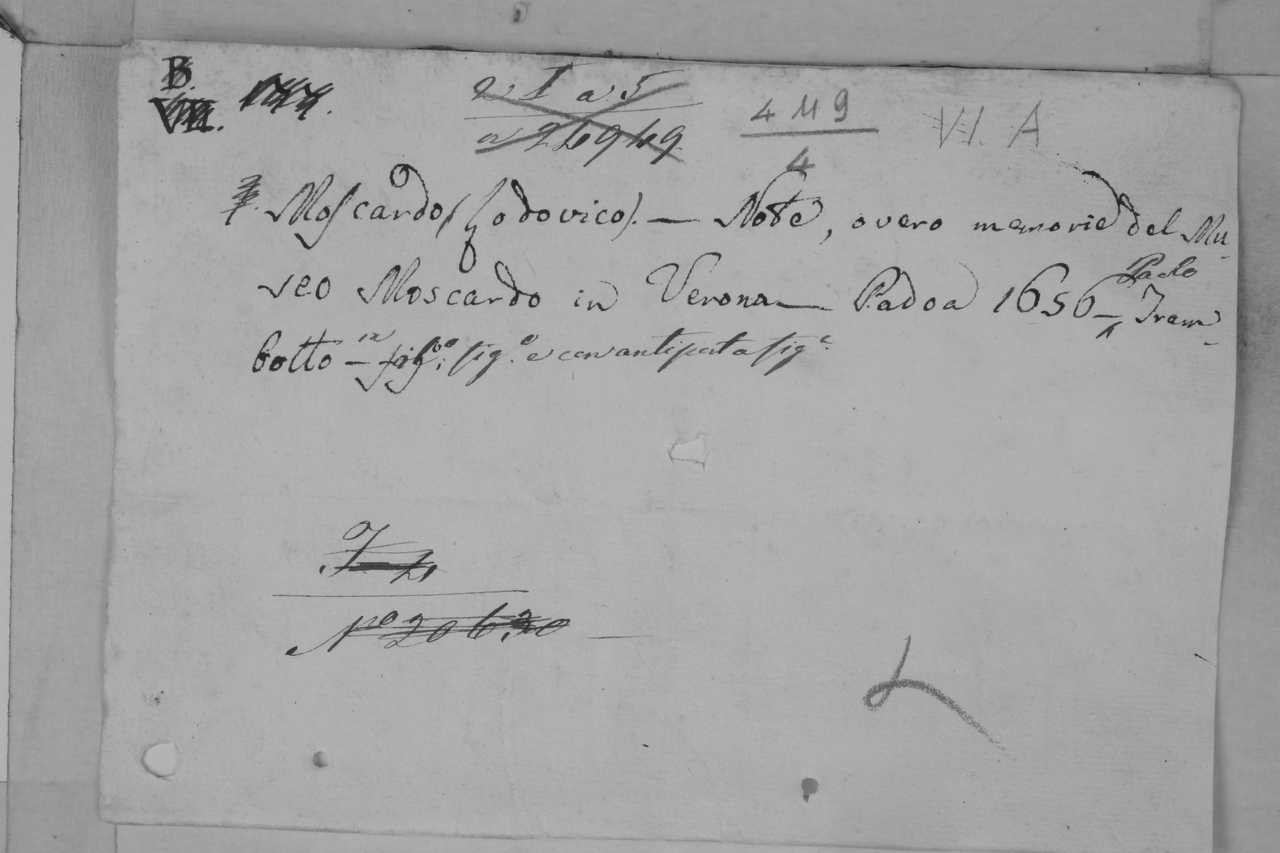 B.
VII.
a I a 5
a 26949
4 M 9
4
VI. A
Moscardo (Lodovico). — Note, overo memorie del Mu-
seo Moscardo in Verona — Padoa 1656 — Paolo Fram-
botto — in fig.º e con antiporta fig.ª
N.º 20620
L